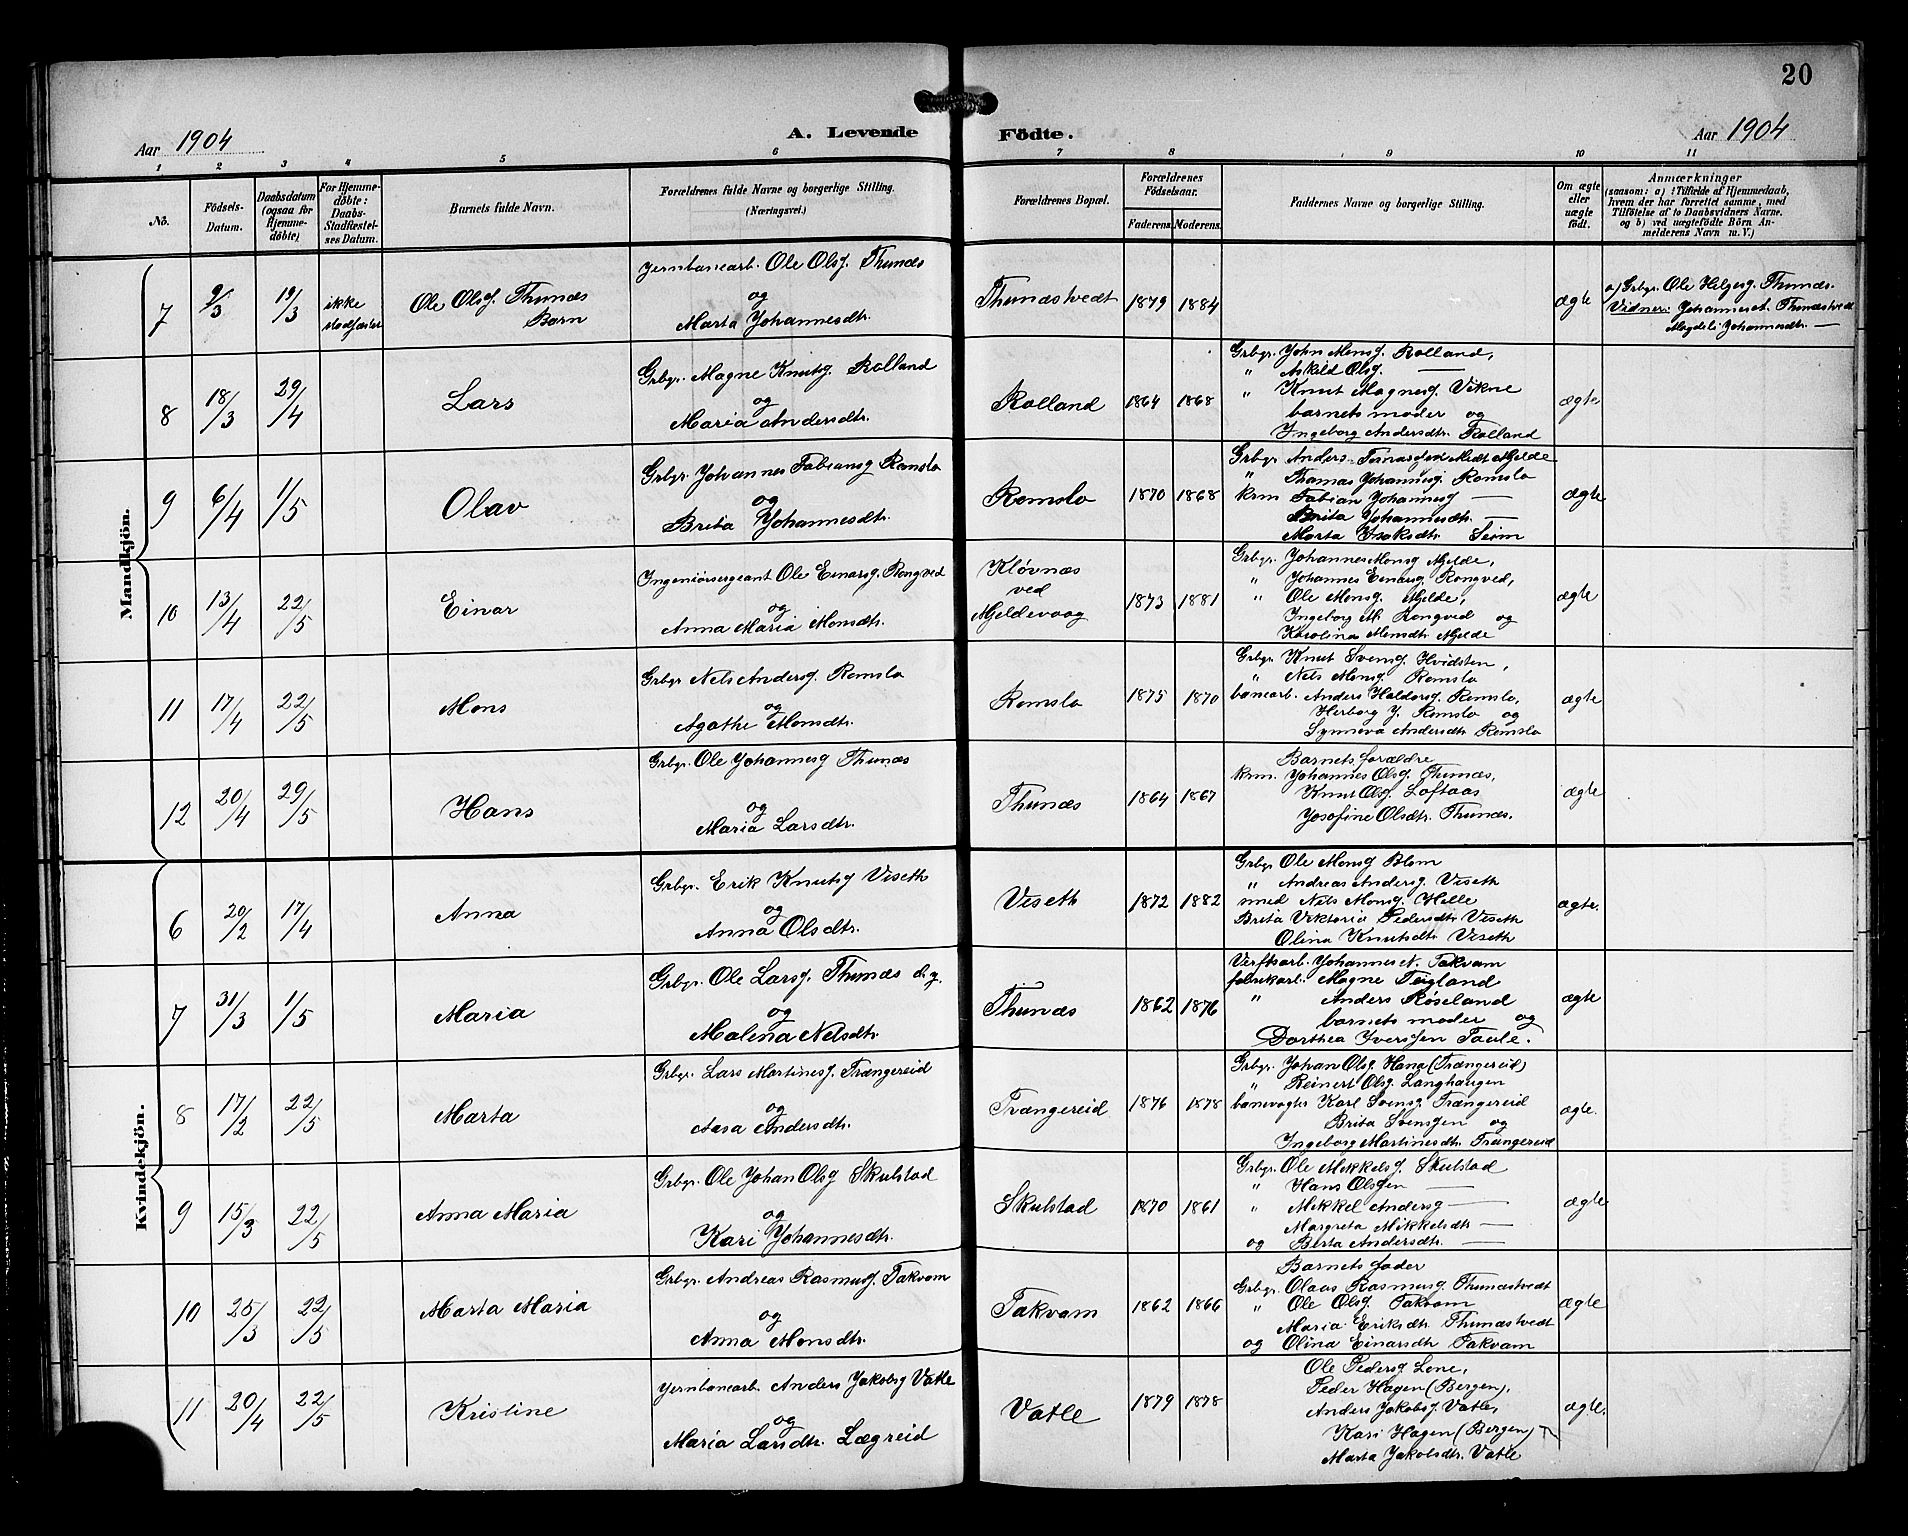 20
Aar 1904
A. Levende Födte.
Aar 1904
1 2 3 4 5 6 7 8 9 10 11
No. Födsels-Datum. Daabsdatum (ogsaa for Hjemmedöbte) For Hjemmedöbte: Daabs-Stadfæstelses Datum. Barnets fulde Navn. Forældrenes fulde Navne og borgerlige Stilling. (Næringsvei.) Forældrenes Bopæl. Forældrenes Födselsaar. Faderens Moderens. Faddernes Navne og borgerlige Stilling. Om ægte eller uægte födt. Anmærkninger (saasom: a) i Tilfælde af Hjemmedaab, hvem der har forrettet samme, med Tilföielse af to Daabsvidners Navne. og b) ved uægtefödte Börn Anmelderens Navn m. V.)
Mandkjön.
7 9/3 19/3 ikke stadfæstet
Ole Olsf. Thunæs
Børn
Jernbanearb. Ole Olsf. Thunæs
og
Marta Johannesdtr.
Thunæstvedt 1879 1884 ægte
a) Grbgr. Ole Helgesg. Thunæs.
Vidner: Johannes Thunæstvedt
Magdeli Johannesdtr. —
8 18/3 29/4 Lars
Grbgr. Magne Knutsg. Rolland
og
Maria Andersdtr.
Rolland 1864 1868
Grbgr. John Monsg. Rolland,
" Askild Olsg. —
" Knut Magnesg. Vikne
barnets moder og
Ingeborg Andersdtr. Rolland
ægte
9 6/4 1/5 Olav
Grbgr. Johannes Fabiansg Romslo
og
Brita Johannesdtr.
Romslo 1870 1868
Grbgr Anders Midt Mjelde
" Thomas Johannesg. Romslo
krm Fabian Johannesg —
Brita Johannesdtr. —
Marta Isaksdtr. Seim
ægte
10 13/4 22/5 Einar
Ingeniørsergeant Ole Einarsg. Rongved
og
Anna Maria Monsdtr.
Kløvnæs
ved
Mjeldevaag
1873 1881
Grbgr. Johannes Monsg Mjelde,
" Johannes Einarsg. Rongved,
" Ole Monsg. Mjelde,
Ingeborg M. Rongved og
Karolina Monsdtr Mjelde
ægte
11 17/4 22/5 Mons
Grbgr Nels Andersg. Romslo
og
Agathe Monsdtr.
Romslo 1875 1870
Grbgr. Knut Svensg. Hvidsten,
" Nels Monsg. Romslo
banearb. Anders Haldorsg. Romslo,
Herborg J. Romslo og
Synneva Andersdtr Romslo
ægte
12 20/4 29/5 Hans
Grbgr. Ole Johannesg Thunæs
og
Maria Larsdtr.
Thunæs 1864 1867
Barnets forældre
krm. Johannes Olsg. Thunæs,
Knut Olsg. Loftaas
Josefine Olsdtr. Thunæs.
ægte
Kvindekjön.
6 20/2 17/4 Anna
Grbgr. Erik Knutsg Viseth
og
Anna Olsdtr.
Viseth 1872 1882
Grbgr Ole Monsg Blom
" Andreas Andersg. Viseth
smed Nels Monsg. Helle
Brita Viktoria Pedersdtr Viseth
Olina Knutsdtr Viseth
ægte.
7 31/3 1/5 Maria
Grbgr. Ole Larsg. Thunæs d.y.
og
Malena Nelsdtr
Thunæs 1862 1876
Verftsarb. Johannes N. Takvam
fabrikarb. Magne Teigland
" Anders Røseland
barnets moder og
Dorthea Iversgen Taule.
ægte
8 17/2 22/5 Marta
Grbgr. Lars Martinesg. Trængereid
og
Aasa Andersdtr.
Trængereid 1876 1878
Grbgr. Johan Olsg. Hana (Trængereid)
" Reinert Olsg. Langhaugen
banevogter Karl Svensg. Trængereid
Brita Svensgen og
Ingeborg Martinesdtr Trængereid
ægte.
9 15/3 22/5 Anna Maria
Grbgr. Ole Johan Olsg Skulstad
og
Kari Johannesdtr.
Skulstad 1870 1861
Grbgr. Ole Mikkelsg. Skulstad
" Hans Olsgen —
" Mikkel Andersg —
Margreta Mikkelsdtr —
og Berta Andersdtr. —
ægte
10 25/3 22/5 Marta Maria
Grbgr. Andreas Rasmusg. Takvam
og
Anna Monsdtr.
Takvam 1862 1866
Barnets fader
Grbgr. Olaas Rasmusg. Thunæstvedt
" Ole Olsg. Takvam
Maria Eriksdtr Thunæstvedt
og Olina Einarsdtr Takvam
ægte
11 20/4 22/5 Kristine
Jernbanearb. Anders Jakobsg Vatle
og
Maria Larsdtr. Lægreid
Vatle 1879 1878
Ole Pedersg Lone,
Peder Hagen (Bergen),
Anders Jakobsg. Vatle,
Kari Hagen (Bergen)
Marta Jakobsdtr. Vatle
ægte.